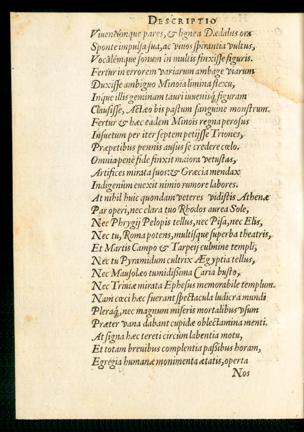 DESCRIPTIO
Viventúmque pares, & lignea Dædalus ora
Sponte impulsa sua, ac vivos spirantia vultus,
Vocálemque sonum in multis finxisse figuris.
Fertur in errorem variarum ambage viarum
Duxisse ambiguo Minoia limina flexu,
Inque illis geminam tauri iuvenisq; figuram
Clausisse, Actæo bis pastum sanguine monstrum.
Fertur & hæc eadem Minois regna perosus
Insuetum per iter septem petijsse Triones,
Præpetibus pennis ausus se credere cælo.
Omnia penè fide finxit maiora vetustas,
Artifices mirata suos: & Græcia mendax
Indigenûm evexit nimio rumore labores.
At nihil huic quondam veteres vidistis Athenæ
Par operi, nec clara tuo Rhodos aurea Sole,
Nec Phrygij Pelopis tellus, nec Pisa, nec Elis,
Nec tu, Roma potens, multisque superba theatris,
Et Martis Campo & Tarpeij culmine templi,
Nec tu Pyramidum cultrix Ægyptia tellus,
Nec Mausoleo tumidissima Caria busto,
Nec Triviæ mirata Ephesus memorabile templum.
Nam cæci hæc fuerant spectacula ludicra mundi
Pleraq;, nec magnum miseris mortalibus usum
Præter vana dabant cupidæ oblectamina menti.
At signa hæc tereti circùm labentia motu,
Et totam brevibus complentia passibus horam,
Egregia humanæ monimenta ætatis, operta
Nos